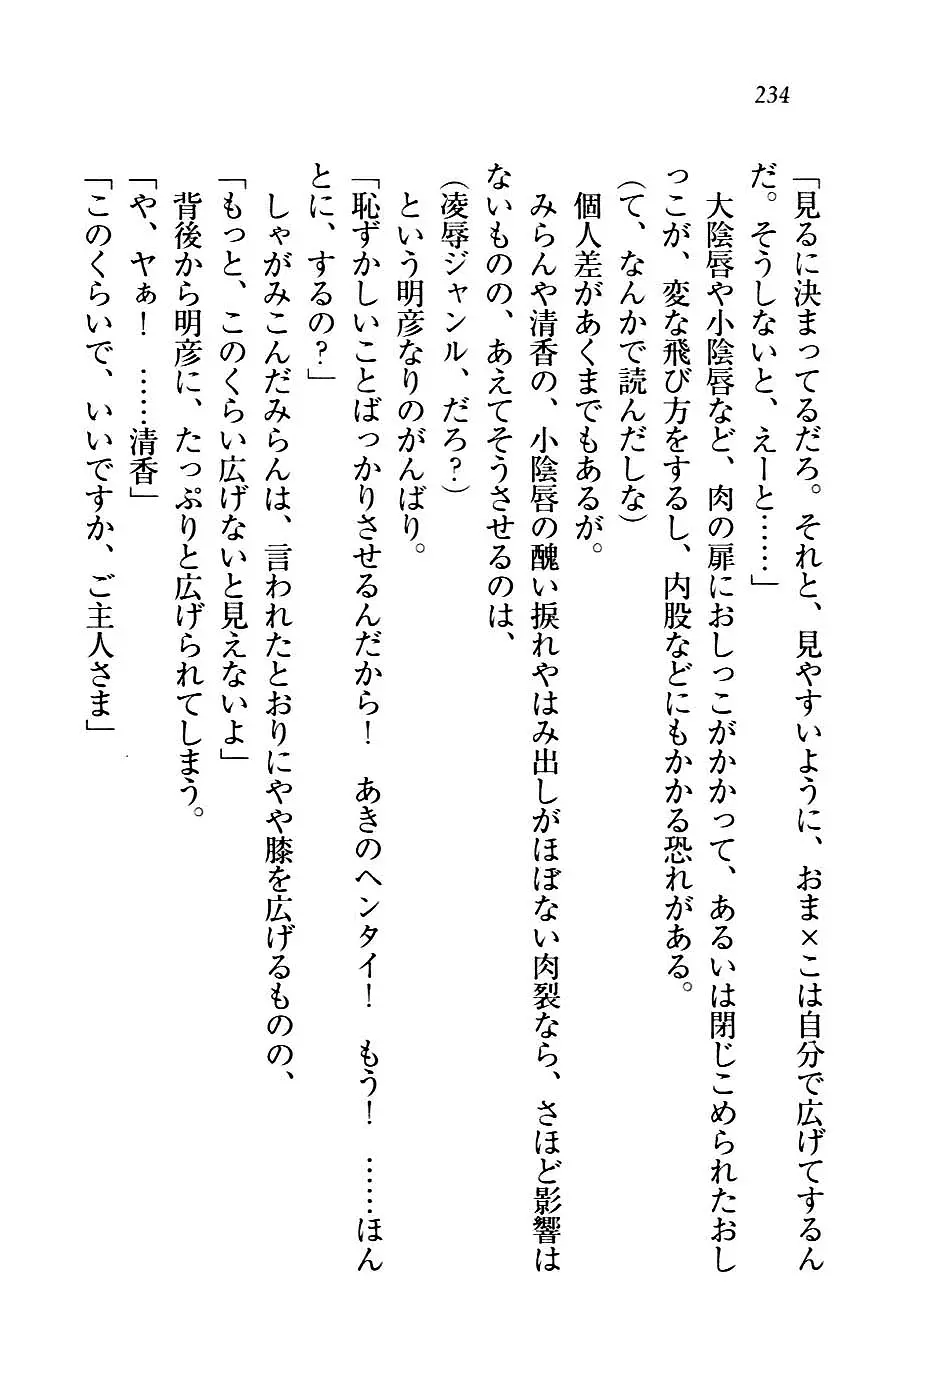 234
「見るに決まってるだろ。それと、見やすいように、おま×こは自分で広げてするん
だ。そうしないと、えーと……」
　大陰唇や小陰唇など、肉の扉におしっこがかかって、あるいは閉じこめられたおし
っこが、変な飛び方をするし、内股などにもかかる恐れがある。
（て、なんかで読んだしな）
　個人差があくまでもあるが。
　みらんや清香の、小陰唇の醜い捩れやはみ出しがほぼない肉裂なら、さほど影響は
ないものの、あえてそうさせるのは、
（凌辱ジャンル、だろ？）
　という明彦なりのがんばり。
「恥ずかしいことばっかりさせるんだから！　あきのヘンタイ！　もう！　……ほん
とに、するの？」
　しゃがみこんだみらんは、言われたとおりにやや膝を広げるものの、
「もっと、このくらい広げないと見えないよ」
　背後から明彦に、たっぷりと広げられてしまう。
「や、ヤぁ！　……清香」
「このくらいで、いいですか、ご主人さま」